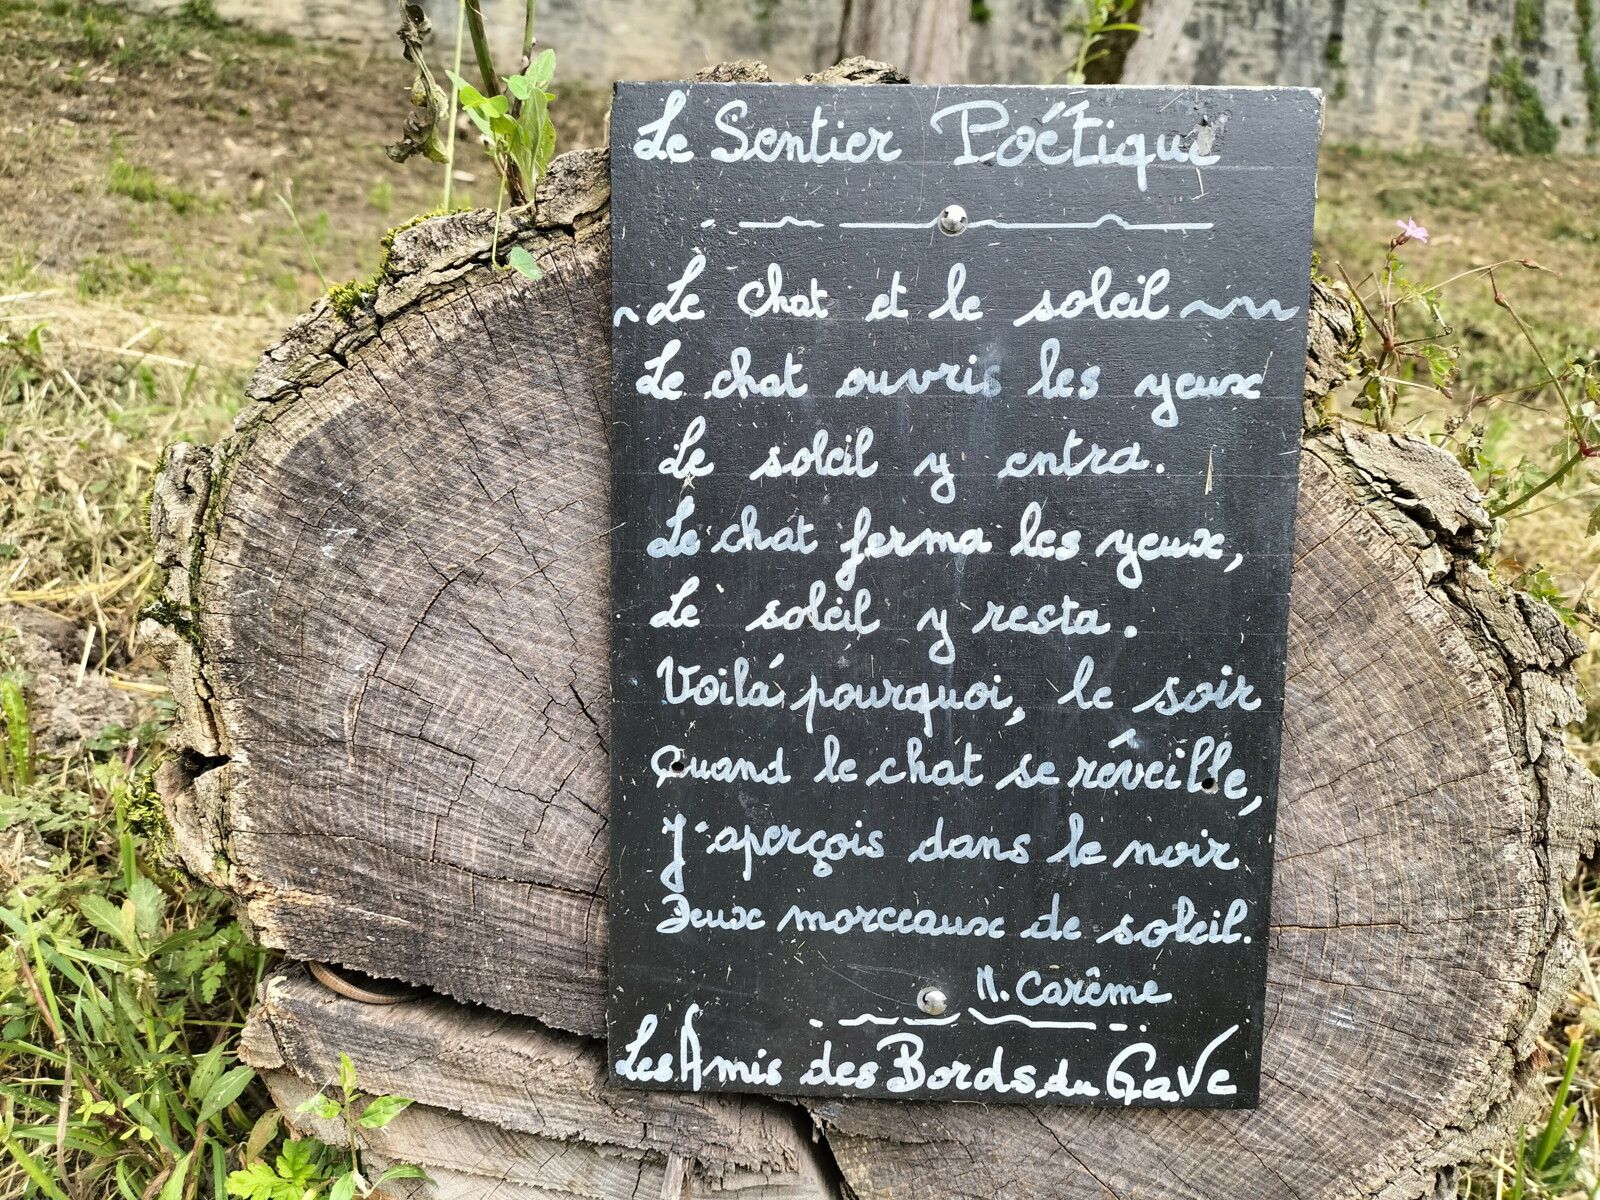 Le Sentier Poétique
Le chat et le soleil
Le chat ouvris les yeux
Le soleil y entra.
Le chat ferma les yeux,
Le soleil y resta.
Voilá pourquoi, le soir
Quand le chat se rêveille,
J'aperçois dans le noir
Deux morceaux de soleil.
M. Carême
Les Amis des Bords du Gave